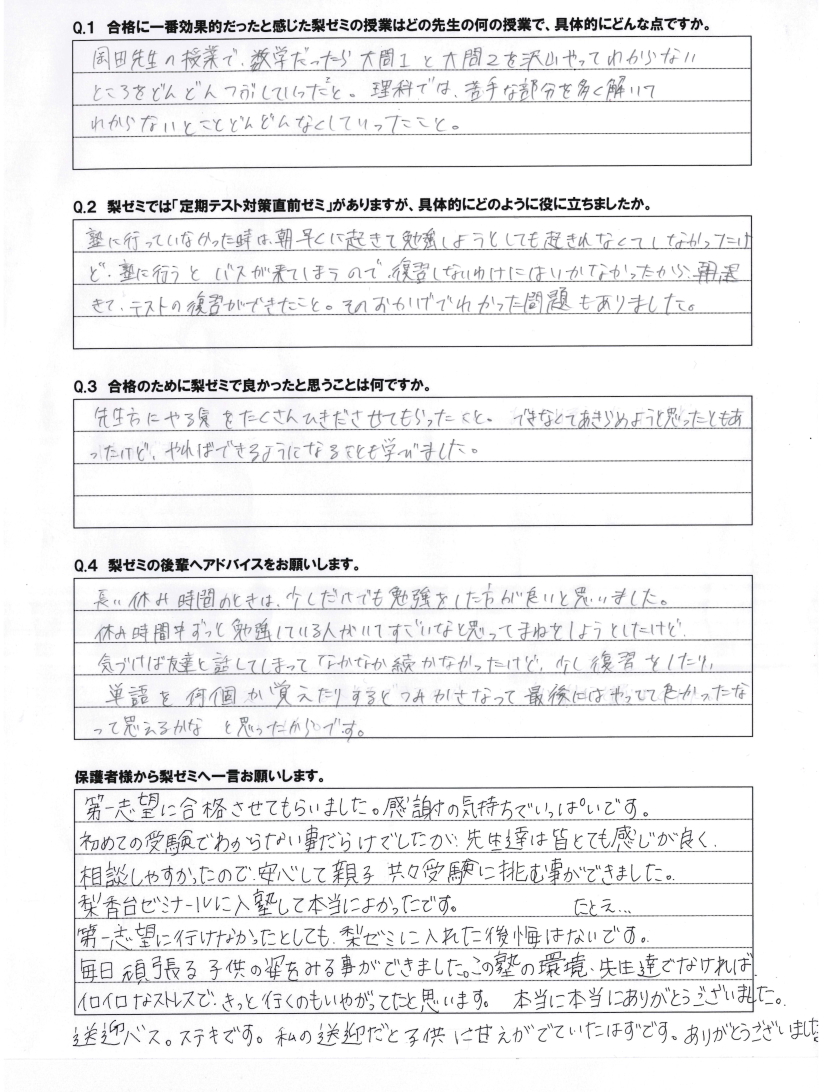 Q.1 合格に一番効果的だったと感じた梨ゼミの授業はどの先生の何の授業で、具体的にどんな点ですか。
岡田先生の授業で、数学だったら大問1と大問2を沢山やってわからない
ところをどんどんつぶしていったこと。理科では、苦手な部分を多く解いて
わからないとことどんどんなくしていったこと。
Q.2 梨ゼミでは「定期テスト対策直前ゼミ」がありますが、具体的にどのように役に立ちましたか。
塾に行っていなかった時は、朝早くに起きて勉強しようとしても起きれなくてしなかったけ
ど、塾に行うと バスが来てしまうので、復習しないわけにはいかなかったから、朝起
きて、テストの復習ができたこと。そのおかげでわかった問題もありました。
Q.3 合格のために梨ゼミで良かったと思うことは何ですか。
先生方にやる気をたくさんひきださせてもらったこと。できなくてあきらめようと思ったともあ
ったけど、やればできるようになることも学びました。
Q.4 梨ゼミの後輩へアドバイスをお願いします。
長い休み時間のときは、少しだけでも勉強をした方が良いと思いました。
休み時間中ずっと勉強している人がいてすごいなと思ってまねをしようとしたけど、
気づけば友達と話してしまって なかなか続かなかったけど、少し復習をしたり、
単語を何個か覚えたりするとつみかさなって最後にはやってて良かったな
って思えるかな と思ったからです。
保護者様から梨ゼミへ一言お願いします。
第一志望に合格させてもらいました。感謝の気持ちでいっぱいです。
初めての受験でわからない事だらけでしたが、先生達は皆とても感じが良く、
相談しやすかったので、安心して親子共々受験に挑む事ができました。
梨香台ゼミナールに入塾して本当によかったです。 たとえ…
第一志望に行けなかったとしても、梨ゼミに入れた後悔はないです。
毎日頑張る子供の姿をみる事ができました。この塾の環境、先生達でなければ
イロイロなストレスで、きっと行くのもいやがってたと思います。 本当に本当にありがとうございました。
送迎バス。ステキです。私の送迎だと子供に甘えがでていたはずです。ありがとうございました